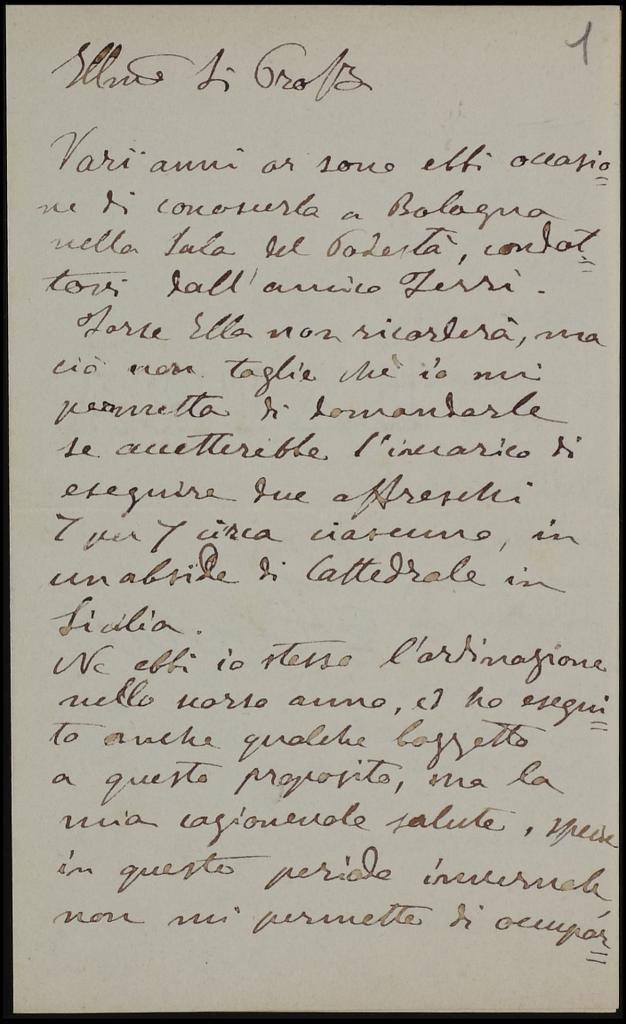 1
Illmo Si Prof
Varii anni or sono ebbi occasio=
ne di conoscerla a Bologna
nella Sala del Podestà, condot=
tovi dall'amico Ferri.
Forse Ella non ricorderà, ma
ciò non toglie che io mi
permetta di domandarle
se accetterebbe l'incarico di
eseguire due affreschi
7 per 7 circa ciascuno, in
un abside di Cattedrale in
Sicilia.
Ne ebbi io stesso l'ordinazione
nello scorso anno, ed ho esegui=
to anche qualche bozzetto
a questo proposito, ma la
mia cagionevole salute, specie
in questo periodo invernale,
non mi permette di occupar=